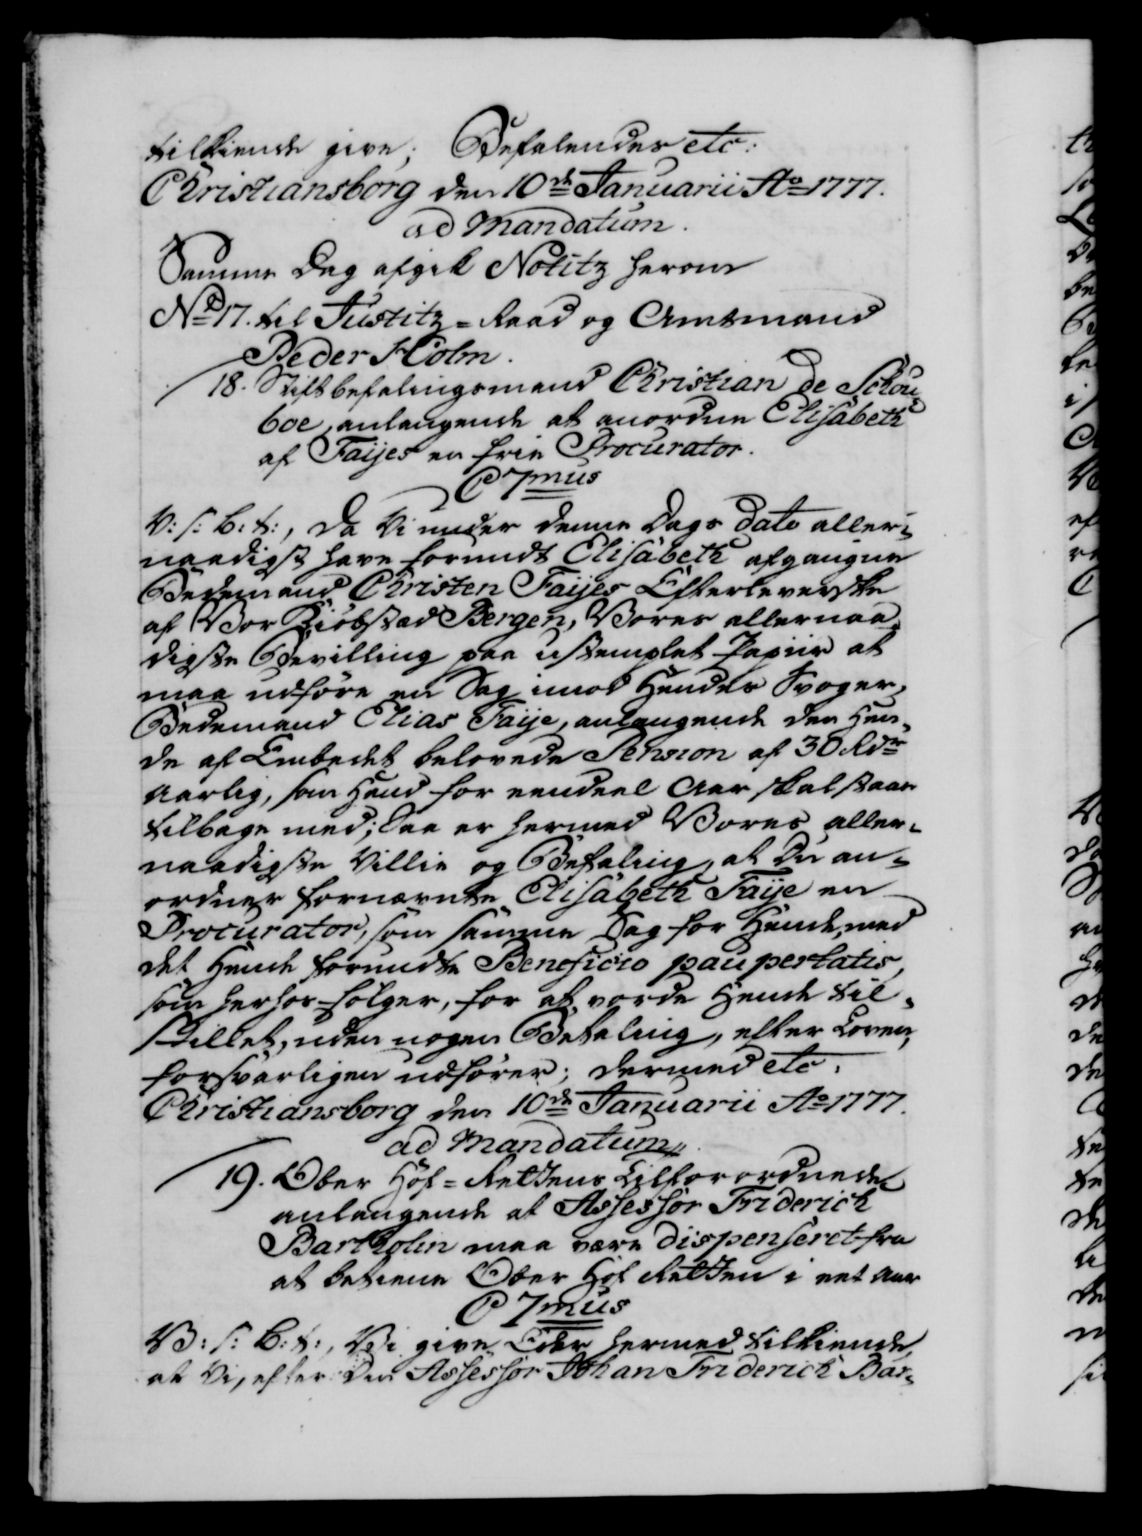 tilkiende give; Befalendes etc:
Christiansborg den 10de Januarii Ao 1777.
ad Mandatum.
Samme Dag afgik Notitz herom
No 17. til Justitz-Raad og Amtmand
Peder Holm.
18. Stiftbefalingsmand Christian de Schou
boe, anlangende at anordne Elisabeth
af Faijes en frie Procurator.
C 7mus
V: s: b: t:, Da Vi under denne Dags dato aller-
naadigst have forundt Elisabeth afgangne
Bedemand Christen Faijes Efterleverske
af Vor Kiöbstæd Bergen, Vores allernaa-
digste Bevilling paa ustemplet Papiir at
maa udføre en Sag imod Hendes Svoger,
Bedemand Elias Faije, anlangende den Hen-
de af Embedet belovede Pension af 30 Rdr
Aarlig, som Hand for eendeel Aar skal staae
tilbage med; Saa er hermed Vores aller-
naadigste Villie og Befaling, at Du an-
ordner fornævnte Elisabeth Faije en
Procurator, som samme Sag for Hende, med
det Hende forundte Beneficio paupertatis,
som herhos følger, for at vorde Hende til-
stillet, uden nogen Betaling, efter Loven,
forsvarligen udfører; dermed etc:
Christiansborg den 10de Januarii Ao 1777.
ad Mandatum
19. Ober Hof-Rettens Tilforordnede
anlangende at Assessor Friderich
Bartholin maa være dispenseret fra
at betiene Ober Hof Retten i eet Aar
C 7mus
V: s: b: t:, Vi give Eder hermed tilkiende,
at Vi, efter Din Assessor Johan Friderich Bar-